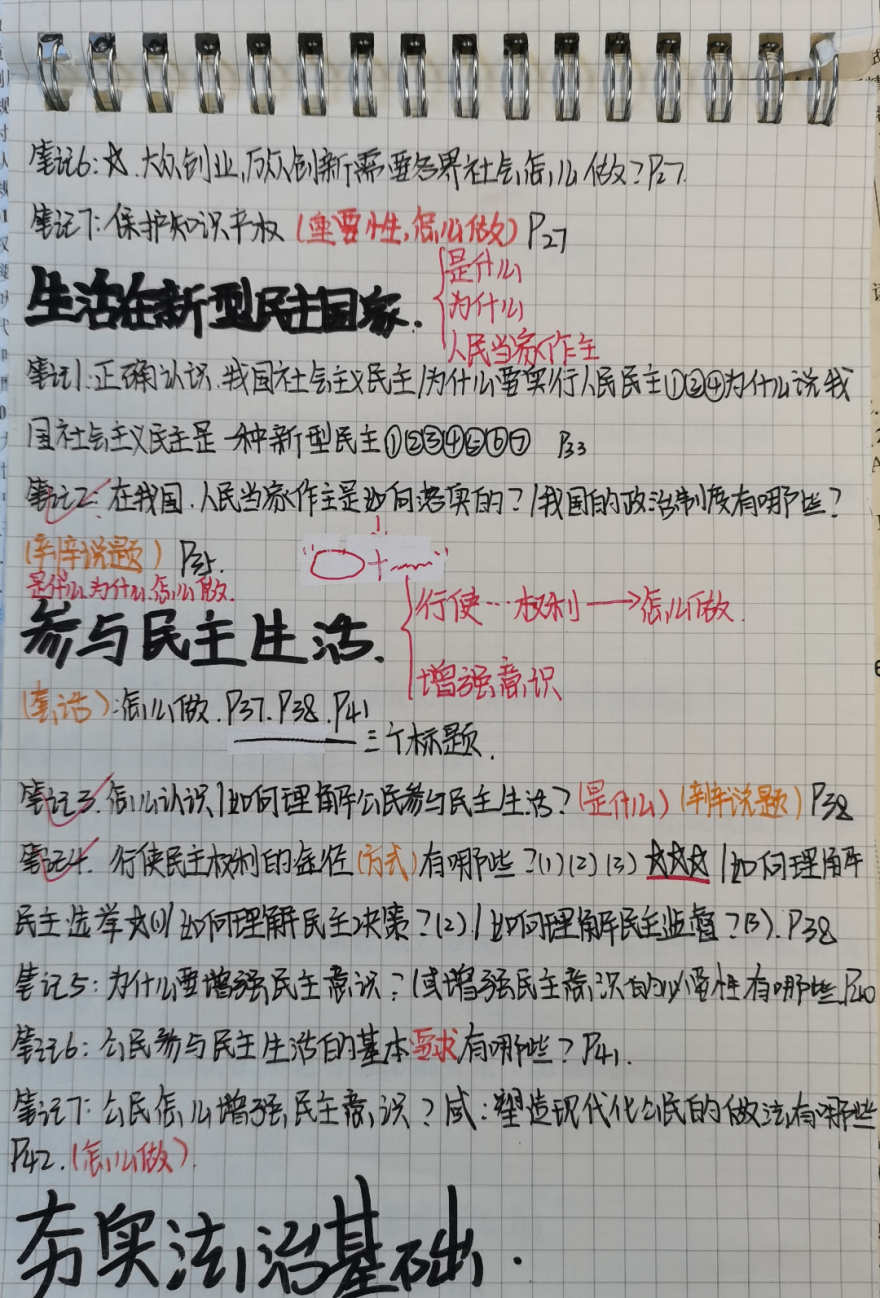 笔记6:☆.大众创业,万众创新需要各界社会怎么做?P27.
笔记7:保护知识平权(重要性,怎么做)P27
是什么
生活在新型民主国家.
为什么
人民当家作主
笔记1.正确认识.我国社会主义民主/为什么要实行人民民主①②④为什么说我
国社会主义民主是一种新型民主①②③④⑤⑥⑦ P33
笔记2:在我国.人民当家作主是如何落实的?/我国的政治制度有哪些?
(辨析说题) P35.
是什么.为什么.怎么做.
行使…权利→怎么做.
参与民主生活.
增强意识
(套话):怎么做.P37.P38.P41
三个标题.
笔记3.怎么认识/如何理解公民参与民主生活?(是什么)(辨析说题)P38
笔记4.行使民主权利的途径(方式)有哪些?(1)(2)(3)☆☆☆/如何理解
民主选举☆(1)/如何理解民主决策?(2)/如何理解民主监督?(3).P38
笔记5:为什么要增强民主意识?/或增强民主意识的必要性有哪些P40
笔记6:公民参与民主生活的基本要求有哪些?P41.
笔记7:公民怎么增强民主意识?或:塑造现代化公民的做法有哪些
P42.(怎么做).
夯实法治基础.